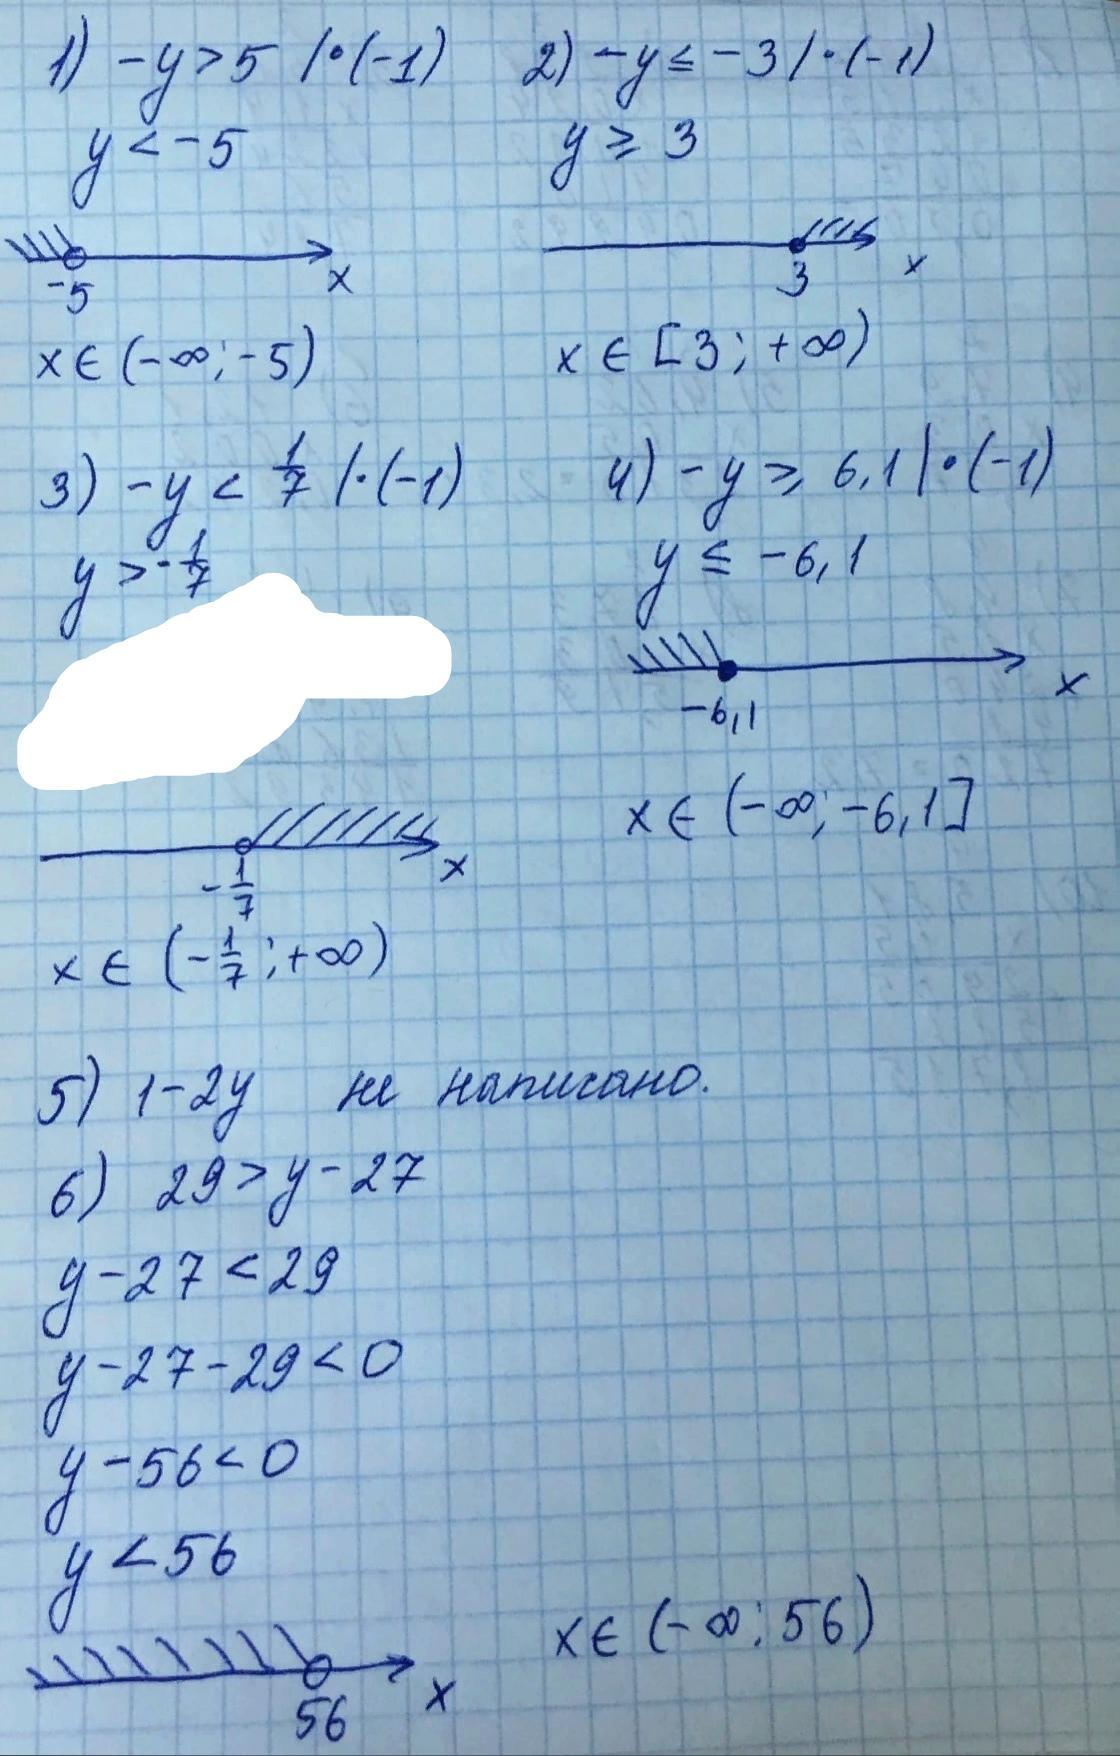 1) -y > 5 |·(-1)
y < -5
-5
x
x ∈ (-∞; -5)
2) -y ≤ -3 |·(-1)
y ≥ 3
3
x
x ∈ [3; +∞)
3) -y < 1/7 |·(-1)
y > -1/7
-1/7
x
x ∈ (-1/7; +∞)
4) -y ≥ 6,1 |·(-1)
y ≤ -6,1
-6,1
x
x ∈ (-∞; -6,1]
5) 1-2y не написано.
6) 29 > y - 27
y - 27 < 29
y - 27 - 29 < 0
y - 56 < 0
y < 56
56
x
x ∈ (-∞; 56)